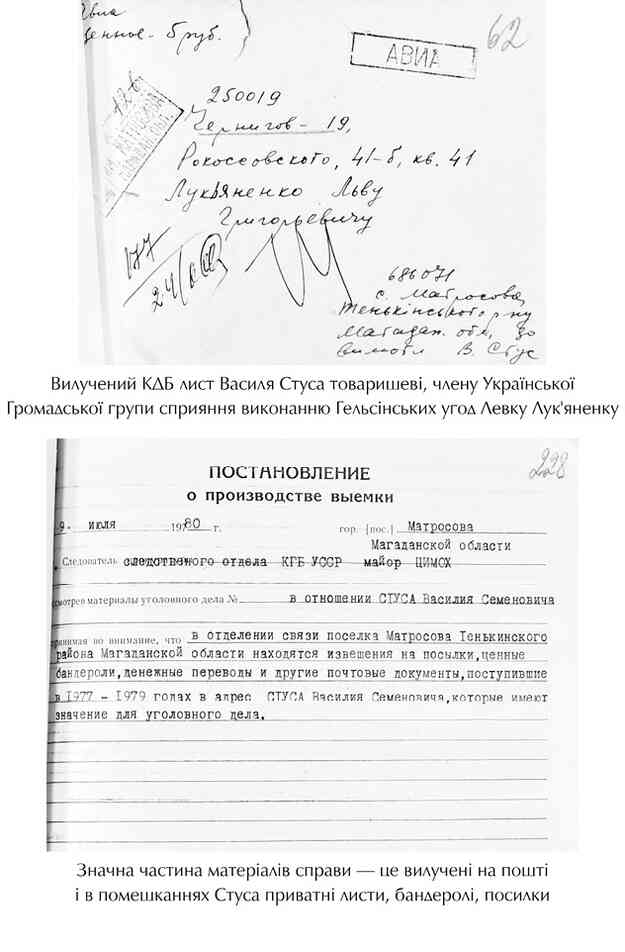 Авиа
ценное - 5 руб.
АВИА
62
250019
Чернигов - 19,
Рокоссовского, 41-б, кв. 41
Лукьяненко Льву
Григорьевичу
177
686071
с. Матросова
Тенькінського р-ну
Магадан. обл,
В. Стус
Вилучений КДБ лист Василя Стуса товаришеві, члену Української
Громадської групи сприяння виконанню Гельсінських угод Левку Лук'яненку
228
ПОСТАНОВЛЕНИЕ
о производстве выемки
9. июля 1980 г. гор. [пос.] Матросова
Магаданской области
Следователь следственого отдела КГБ УССР майор ЦИМОХ
осмотрев материалы уголовного дела № в отношении СТУСА Василия Семеновича
принимая во внимание, что в отделении связи поселка Матросова Тенькинского
района Магаданской области находятся извешения на посылки,ценные
бандероли,денежные переводы и другие почтовые документы,поступившие
в 1977 - 1979 годах в адрес СТУСА Василия Семеновича,которые имеют
значение для уголовного дела.
Значна частина матеріалів справи — це вилучені на пошті
і в помешканнях Стуса приватні листи, бандеролі, посилки